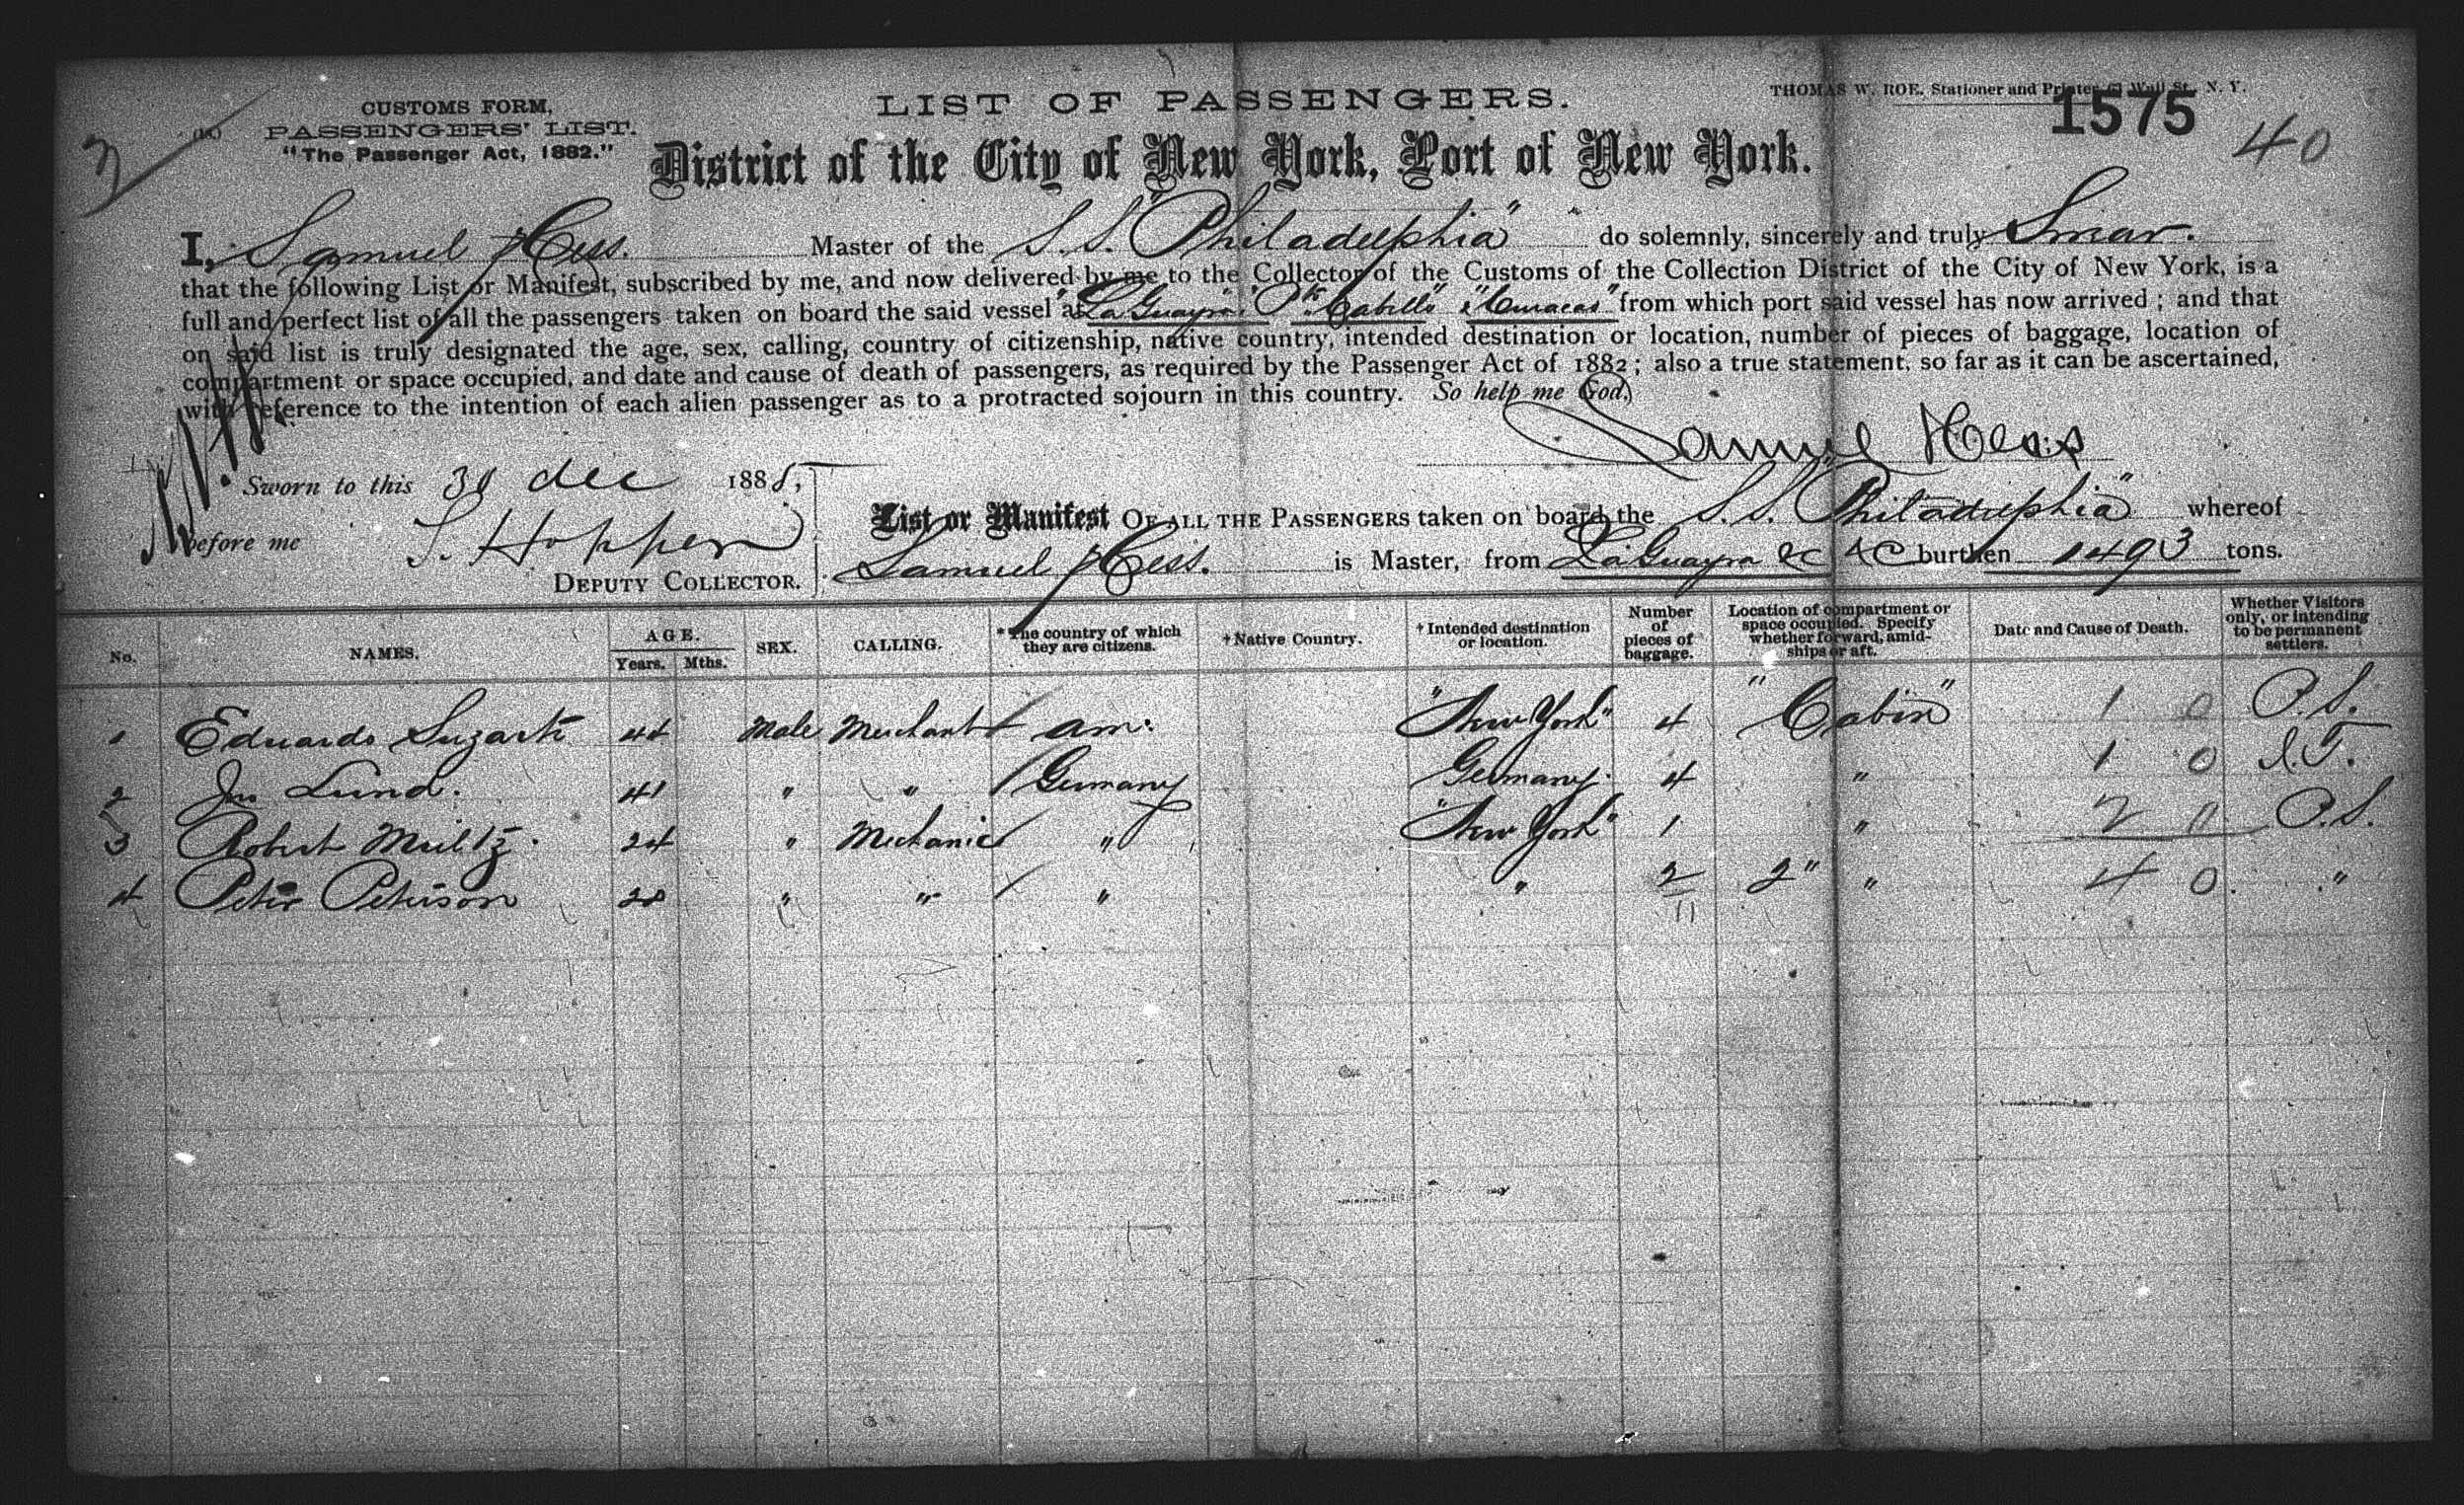 CUSTOMS FORM,
PASSENGERS' LIST.
"The Passenger Act, 1882."
LIST OF PASSENGERS.
THOMAS W. ROE, Stationer and Printer, Wall St., N. Y.
1575
40
District of the City of New York, Port of New York.
I, Samuel Hess. Master of the S.S. "Philadelphia" do solemnly, sincerely and truly Swear.
that the following List or Manifest, subscribed by me, and now delivered by me to the Collector of the Customs of the Collection District of the City of New York, is a
full and perfect list of all the passengers taken on board the said vessel at "La Guayra" "Pto Cabello" & "Curacao" from which port said vessel has now arrived; and that
on said list is truly designated the age, sex, calling, country of citizenship, native country, intended destination or location, number of pieces of baggage, location of
compartment or space occupied, and date and cause of death of passengers, as required by the Passenger Act of 1882; also a true statement, so far as it can be ascertained,
with reference to the intention of each alien passenger as to a protracted sojourn in this country. So help me God.
Samuel Hess
Sworn to this dec 1885,
before me
DEPUTY COLLECTOR.
List or Manifest OF ALL THE PASSENGERS taken on board the S.S. "Philadelphia" whereof
Samuel Hess. is Master, from La Guayra &c &c burthen 1493 tons.
No. NAMES. AGE. Years. Mths. SEX. CALLING. *The country of which they are citizens. †Native Country. †Intended destination or location. Number of pieces of baggage. Location of compartment or space occupied. Specify whether forward, amidships or aft. Date and Cause of Death. Whether Visitors only, or intending to be permanent settlers.
1 Eduardo 44 Male Merchant am. "New York" 4 "Cabin" 1 0 P.S.
2 Jno Lund. 41 " " Germany Germany. 4 " 1 0
3 Robert 24 " Mechanic " "New York" 1 " 2 P.S.
4 Peter Peterson 28 " " " " 2 2" " 4 0 "
11